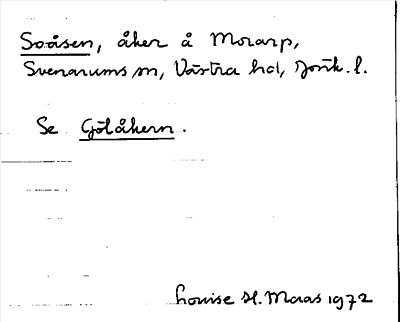 Soåsen, åker å Morarp,
Svenarums sn, Västra hd, Jönk. l.
Se Gölåkern.
Louise H. Maas 1972